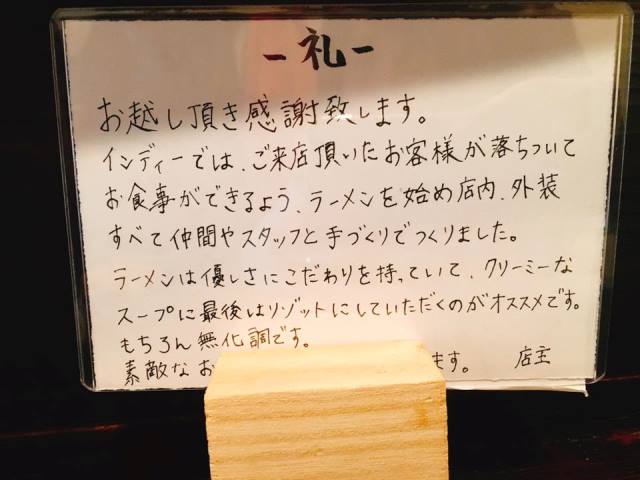 - 礼 -
お越し頂き感謝致します。
インディーでは、ご来店頂いたお客様が落ちついて
お食事ができるよう、ラーメンを始め店内、外装
すべて仲間やスタッフと手づくりでつくりました。
ラーメンは優しさにこだわりを持っていて、クリーミーな
スープに最後はリゾットにしていただくのがオススメです。
もちろん無化調です。
素敵なお ます。 店主